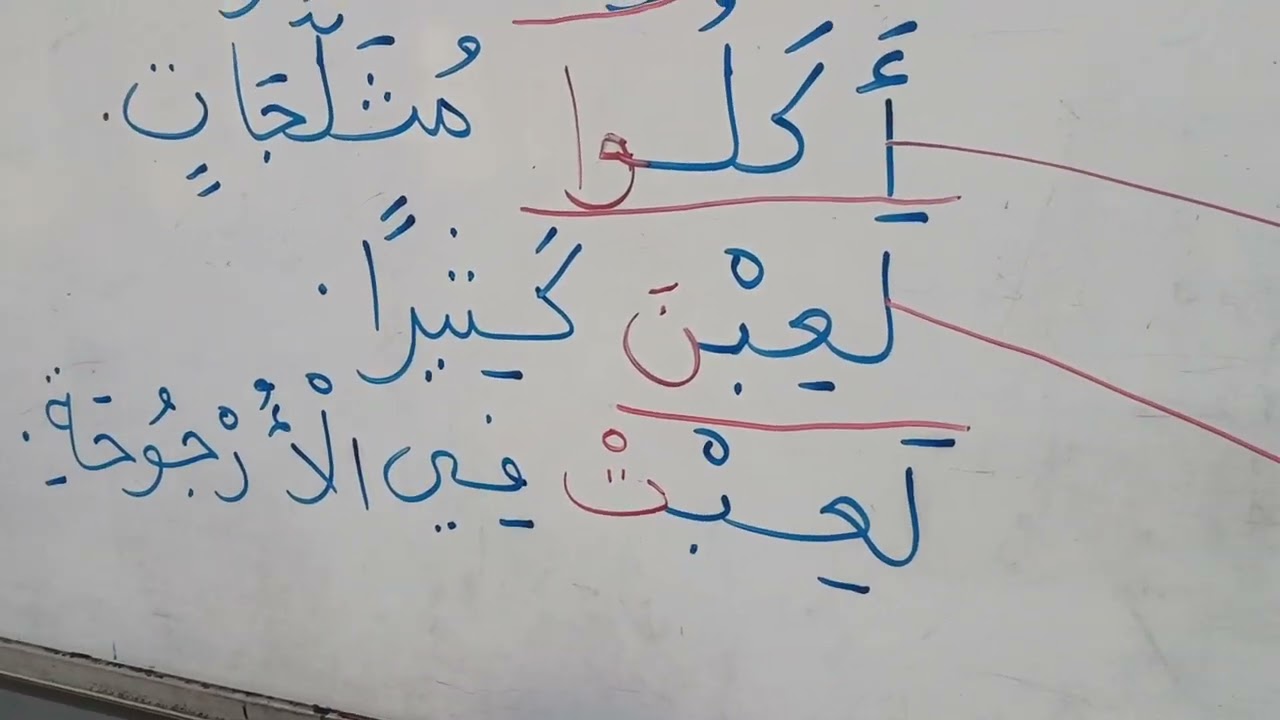 أَكَلُوا مُثَلَّجَاتٍ.
لَعِبْنَ كَثِيرًا.
لَعِبْتْ فِي الْأُرْجُوحَةِ.